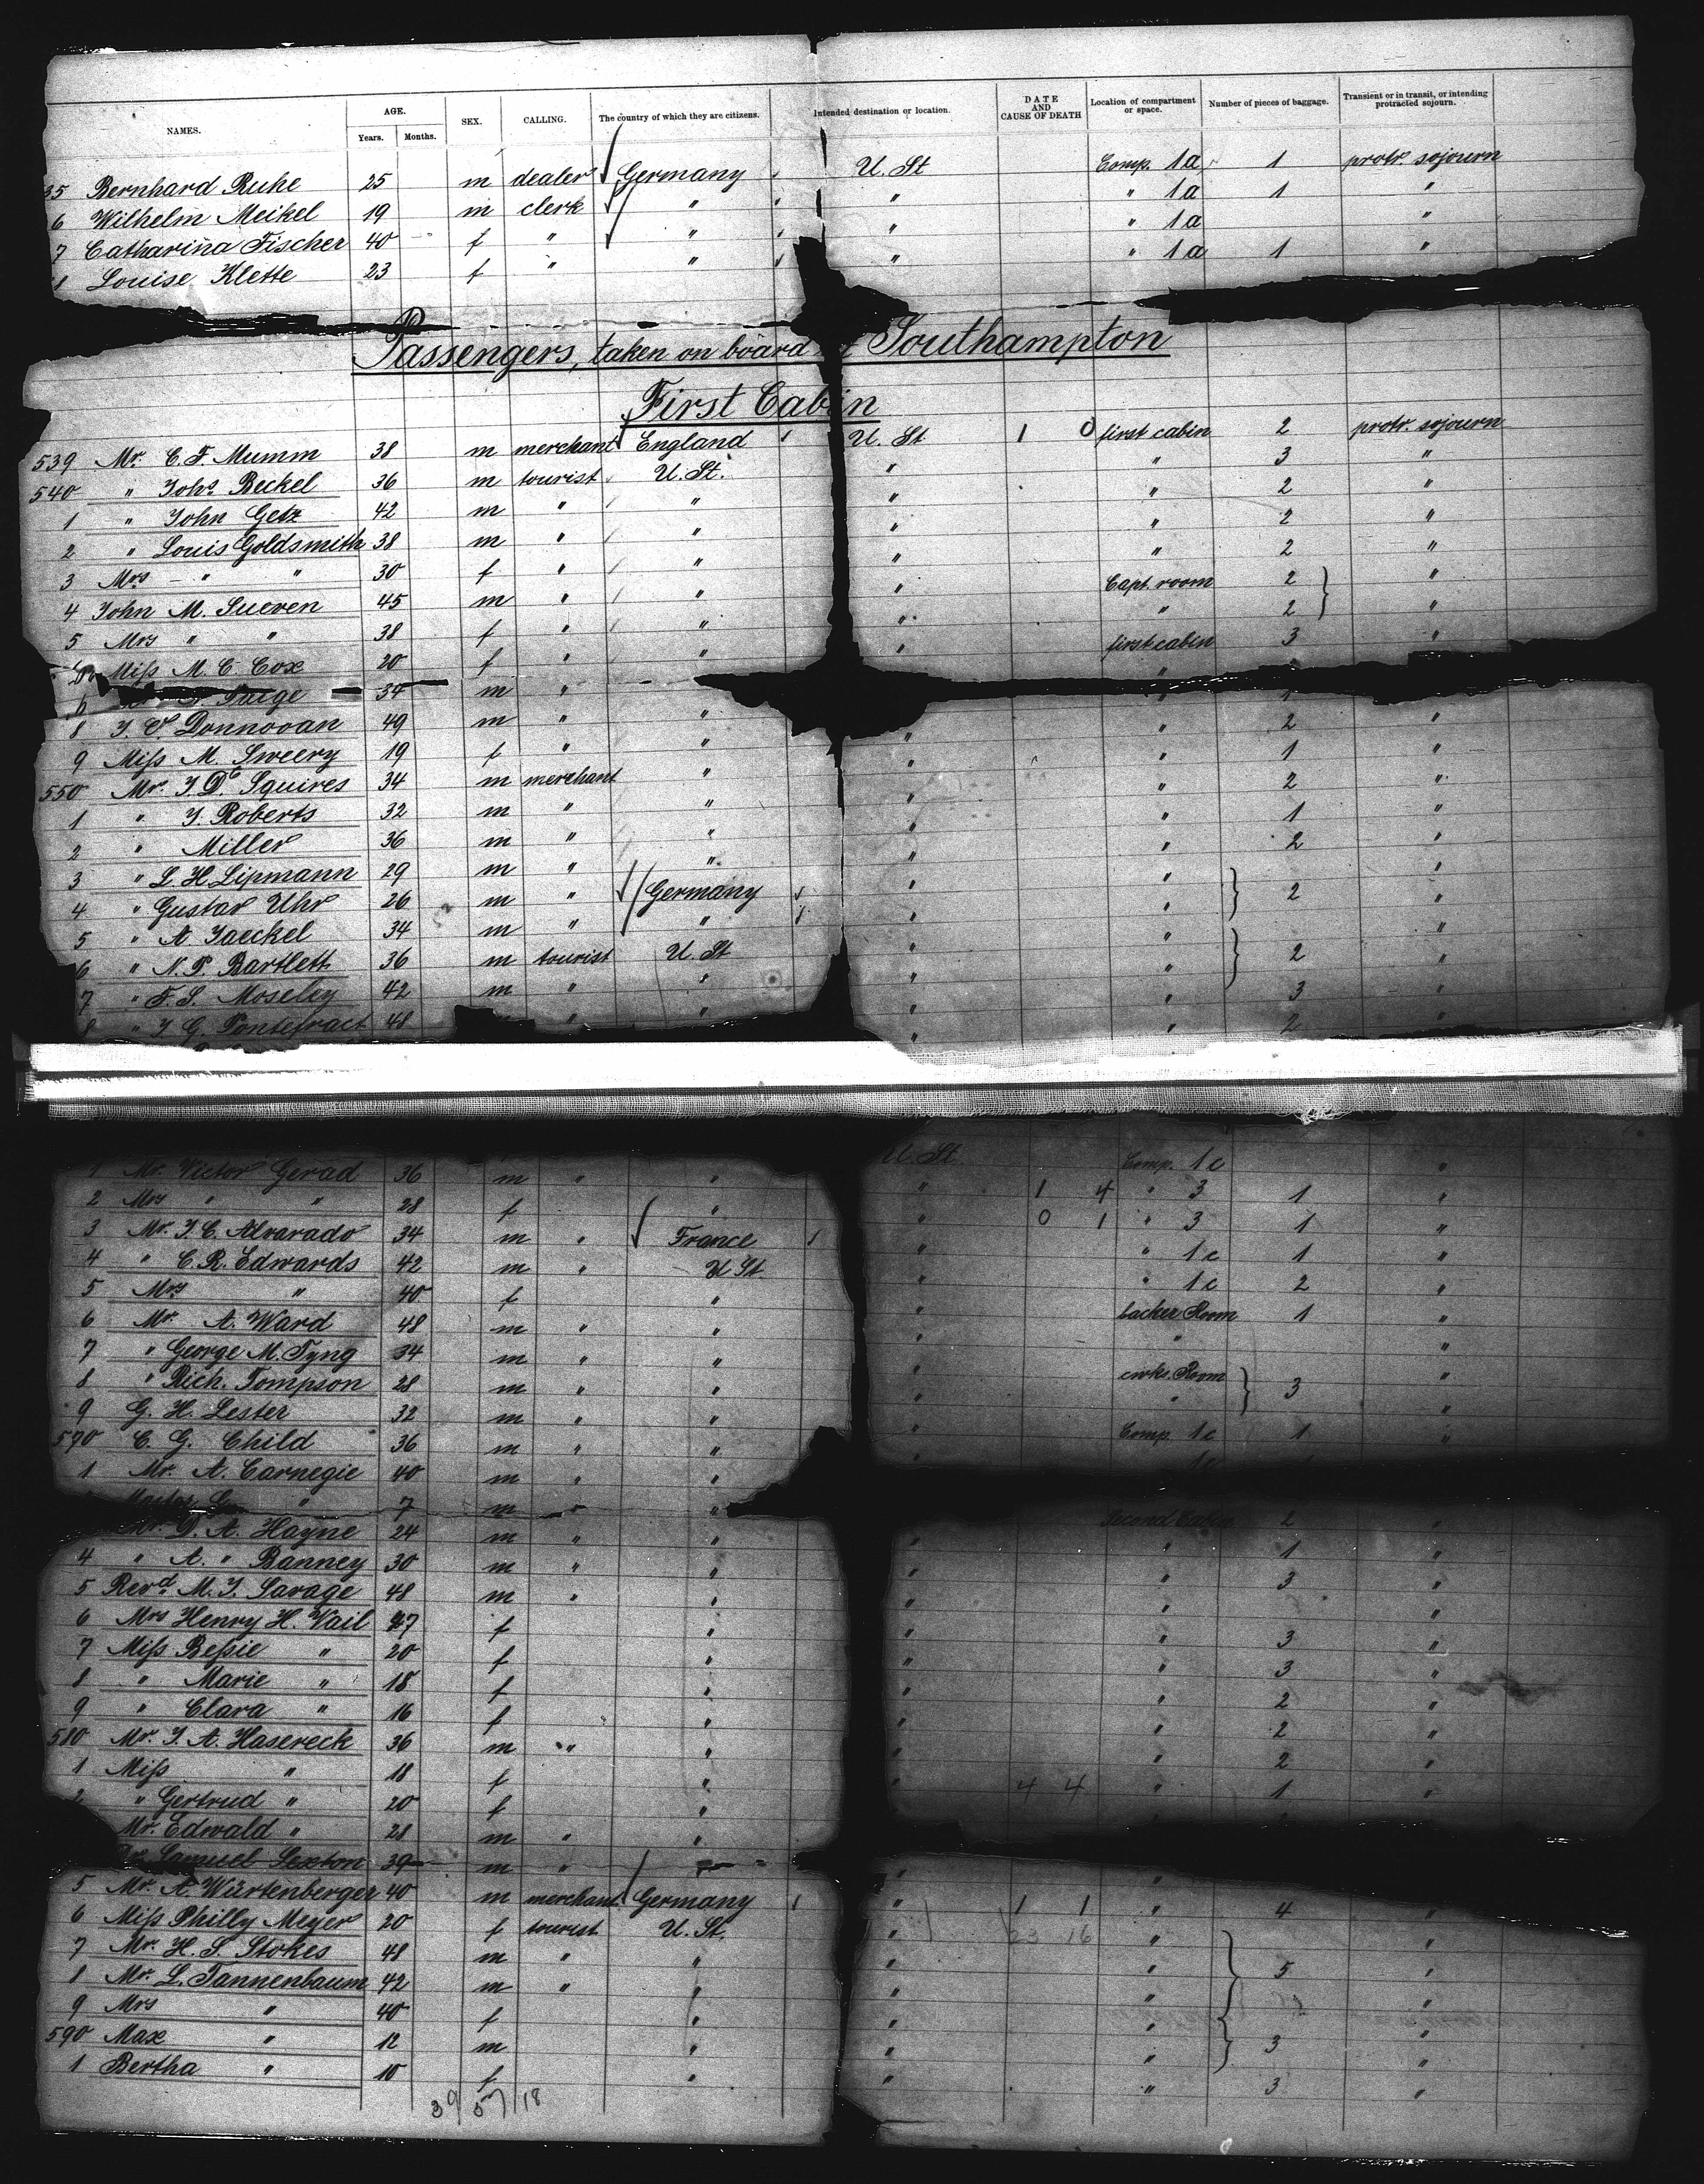 NAMES. AGE. Years. Months. SEX. CALLING. The country of which they are citizens. Intended destination or location. DATE AND CAUSE OF DEATH Location of compartment or space. Number of pieces of baggage. Transient or in transit, or intending protracted sojourn.
35 Bernhard Ruhe 25 m dealer Germany U. St Comp. 1a 1 protr. sojourn
6 Wilhelm Meikel 19 m clerk " " " 1a 1 "
7 Catharina Fischer 40 f " " " " 1a "
8 Louise Klette 23 f " " " " 1a 1 "
Passengers, taken on board Southampton
First Cabin
539 Mr. C. F. Mumm 38 m merchant England U. St 1 0 first cabin 2 protr. sojourn
540 " Johs Beckel 36 m tourist U. St. " " 3 "
1 " John Getz 42 m " " " " 2 "
2 " Louis Goldsmith 38 m " " " " 2 "
3 Mrs " " 30 f " " " " 2 "
4 John M. Sueven 45 m " " " Capt. room 2 "
5 Mrs " " 38 f " " " " 2 "
Miss M. C. Cox 20 f " " " first cabin 3 "
Paige 34 m "
8 J. O. Donnovan 49 m " " " " 2 "
9 Miss M. Sweery 19 f " " " " 1 "
550 Mr. J. D. Squires 34 m merchant " " " 2 "
1 " J. Roberts 32 m " " " " 1 "
2 " Miller 36 m " " " " 2 "
3 " L. H. Lipmann 29 m " " " " "
4 " Gustav Uhr 26 m " Germany " " 2 "
5 " A Jaeckel 34 m " " " " "
6 " N. P. Bartlett 36 m tourist U. St " " 2 "
7 " F. S. Moseley 42 m " " " " 3 "
8 " J G. Pontefract 48 " " " " 2 "
1 Mr. Victor Gerad 36 m " " U. St Comp. 1c "
2 Mrs " " 28 f " " 1 4 " 3 1 "
3 Mr. J. C. Alvarado 34 m " France " 0 1 " 3 1 "
4 " C. R. Edwards 42 m " U St. " " 1c 1 "
5 Mrs " 40 f " " " 1c 2 "
6 Mr. A. Ward 48 m " " " backer Room 1 "
7 " George M. Tyng 34 m " " " "
8 " Rich. Tompson 28 m " " " Room 3 "
9 G. H. Lester 32 m " " " " "
570 C. G. Child 36 m " " " Comp. 1c 1 "
1 Mr. A. Carnegie 40 m " " "
Master " 7 m " "
Mr. D. A. Hayne 24 m " " " Second Cabin 2 "
4 " A. " Banney 30 m " " " " 1 "
5 Revd. M. J. Savage 48 m " " " " 3 "
6 Mrs Henry H. Vail 47 f " " " "
7 Miss Bessie " 20 f " " " 3 "
8 " Marie " 18 f " " " 3 "
9 " Clara " 16 f " " " 2 "
580 Mr. J. A. Hasereck 36 m " " " " 2 "
1 Miss " 18 f " " " 2 "
2 " Gertrud " 20 f " " 4 4 " 1 "
Mr. Edwald " 28 m " "
Samuel Sexton 39 m " "
5 Mr. A Würtenberger 40 m merchant Germany " 1 1 " 4 "
6 Miss Philly Meyer 20 f tourist U. St. " 23 16 " "
7 Mr. H. S. Stokes 48 m " " " " 5 "
8 Mr. L. Tannenbaum 42 m " " " " "
9 Mrs " 40 f " " " "
590 Max " 12 m " " " 3 "
1 Bertha " 10 f " " " 3 "
39 57 18